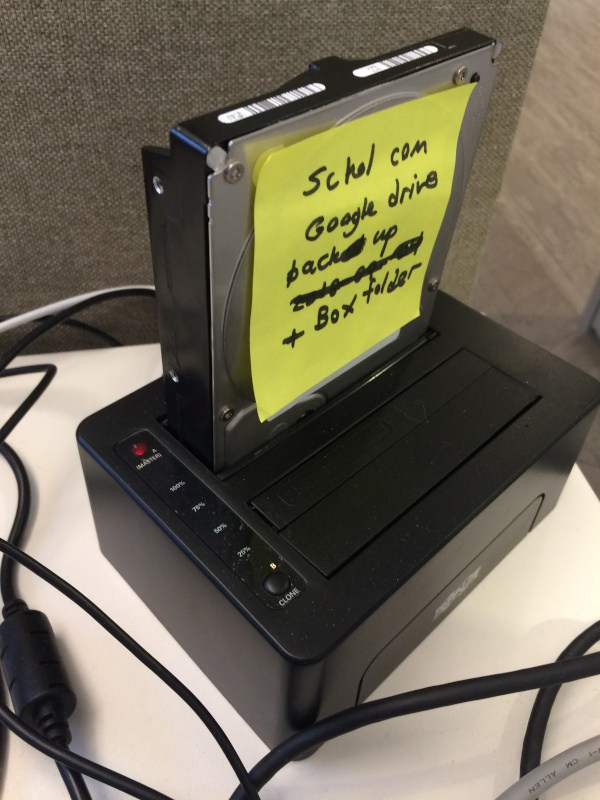 Schol com
Google drive
back up
+ Box folder
A
(MASTER)
100%
75%
50%
25%
B
CLONE
CM ALLEN